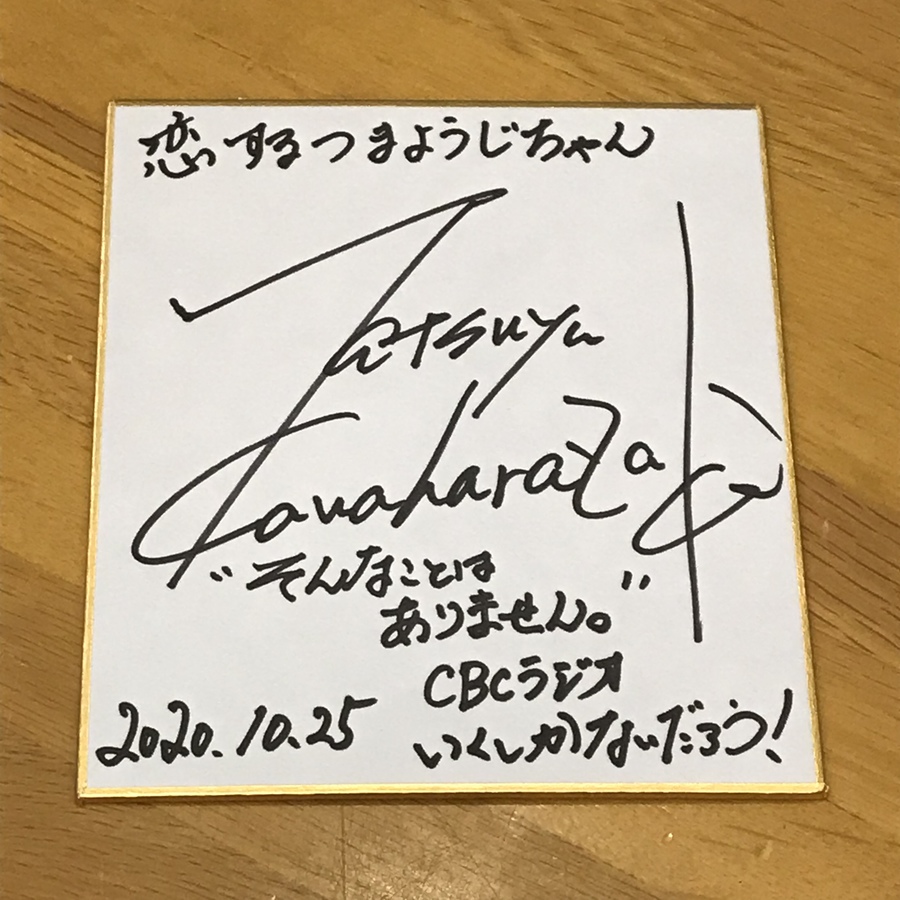 恋するつまようじちゃん
Tatsuya
Kawaharazaki
"そんなことは
ありません。"
CBCラジオ
2020.10.25
いくしかないだろう!